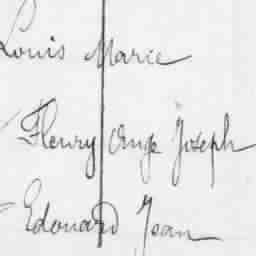 Louis Marie
Fleury Ange Joseph
Edouard Jean